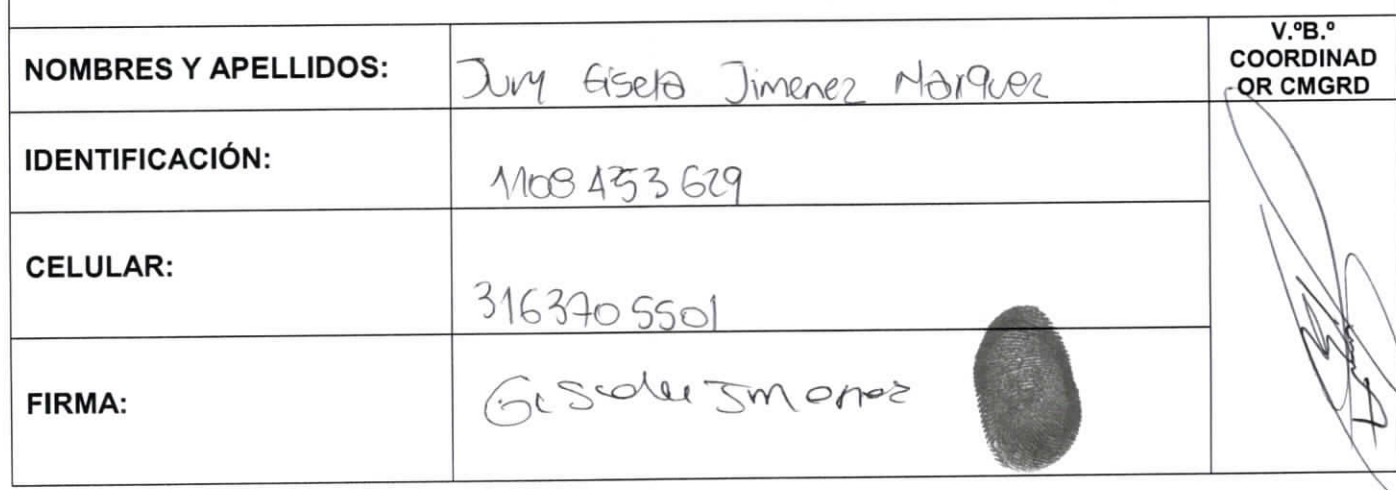 NOMBRES Y APELLIDOS: Jury Gisela Jimenez Marquez
V.ºB.º
COORDINAD
OR CMGRD
IDENTIFICACIÓN: 1108 453 629
CELULAR: 3163705501
FIRMA: